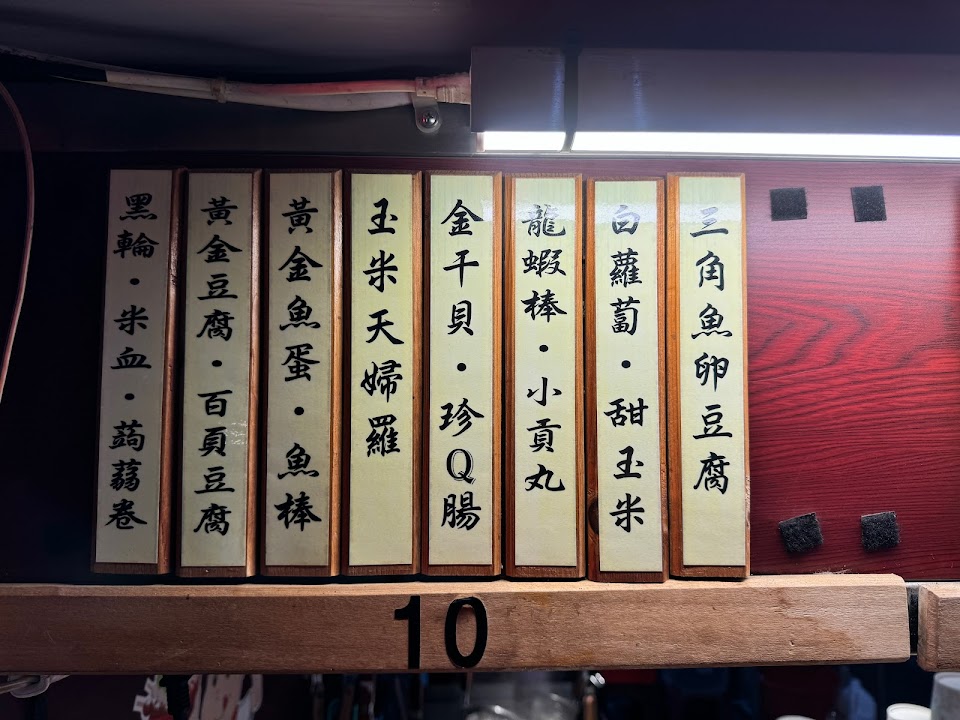 三角魚卵豆腐
白蘿蔔・甜玉米
龍蝦棒・小貢丸
金干貝・珍Q腸
玉米天婦羅
黃金魚蛋・魚棒
黃金豆腐・百頁豆腐
黑輪・米血・蒟蒻卷
10